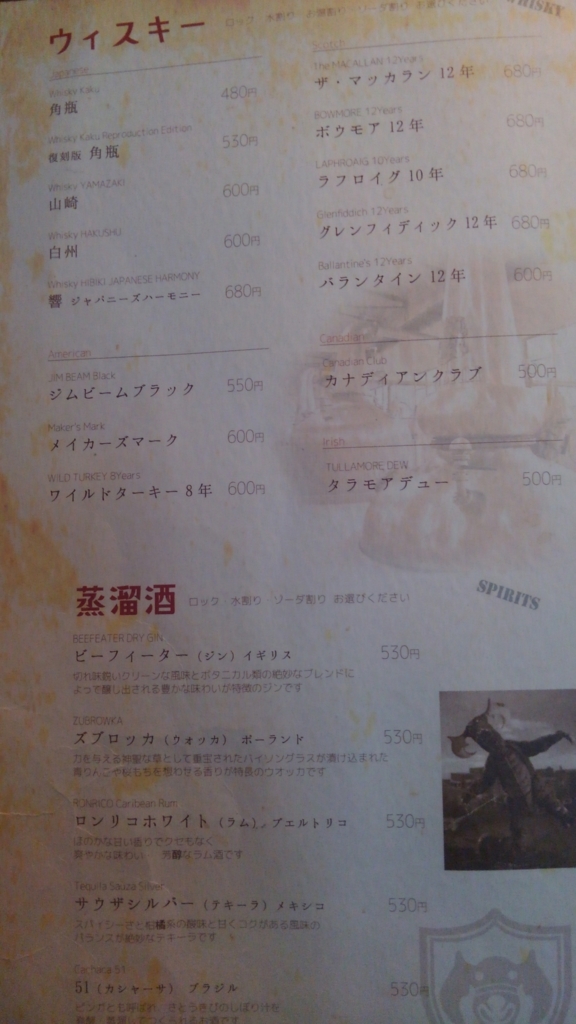 ウィスキー ロック 水割り お湯割り ソーダ割り お選びください
WHISKY
Japanese
Whisky Kaku
角瓶 480円
Whisky Kaku Reproduction Edition
復刻版 角瓶 530円
Whisky YAMAZAKI
山崎 600円
Whisky HAKUSHU
白州 600円
Whisky HIBIKI JAPANESE HARMONY
響 ジャパニーズハーモニー 680円
American
JIM BEAM Black
ジムビームブラック 550円
Maker's Mark
メイカーズマーク 600円
WILD TURKEY 8Years
ワイルドターキー 8 年 600円
Scotch
The MACALLAN 12Years
ザ・マッカラン 12 年 680円
BOWMORE 12Years
ボウモア 12 年 680円
LAPHROAIG 10Years
ラフロイグ 10 年 680円
Glenfiddich 12Years
グレンフィディック 12 年 680円
Ballantine's 12Years
バランタイン 12 年 600円
Canadian
Canadian Club
カナディアンクラブ 500円
Irish
TULLAMORE DEW
タラモアデュー 500円
蒸溜酒 ロック 水割り ソーダ割り お選びください
SPIRITS
BEEFEATER DRY GIN
ビーフィーター（ジン）イギリス 530円
切れ味鋭いクリーンな風味とボタニカル類の絶妙なブレンドに
よって醸し出される豊かな味わいが特徴のジンです
ZUBROWKA
ズブロッカ（ウォッカ） ポーランド 530円
力を与える神聖な草として重宝されたバイソングラスが漬け込まれた
青りんごや桜もちを想わせる香りが特長のウオッカです
RONRICO Caribean Rum
ロンリコホワイト（ラム）プエルトリコ 530円
ほのかな甘い香りでクセもなく
爽やかな味わい 芳醇なラム酒です
Tequila Sauza Silver
サウザシルバー（テキーラ）メキシコ 530円
スパイシーさと柑橘系の酸味と甘くコクがある風味の
バランスが絶妙なテキーラです
Cachaca 51
51（カシャーサ） ブラジル 530円
ピンガとも呼ばれ、さとうきびのしぼり汁を
発酵・蒸溜してつくられるお酒です